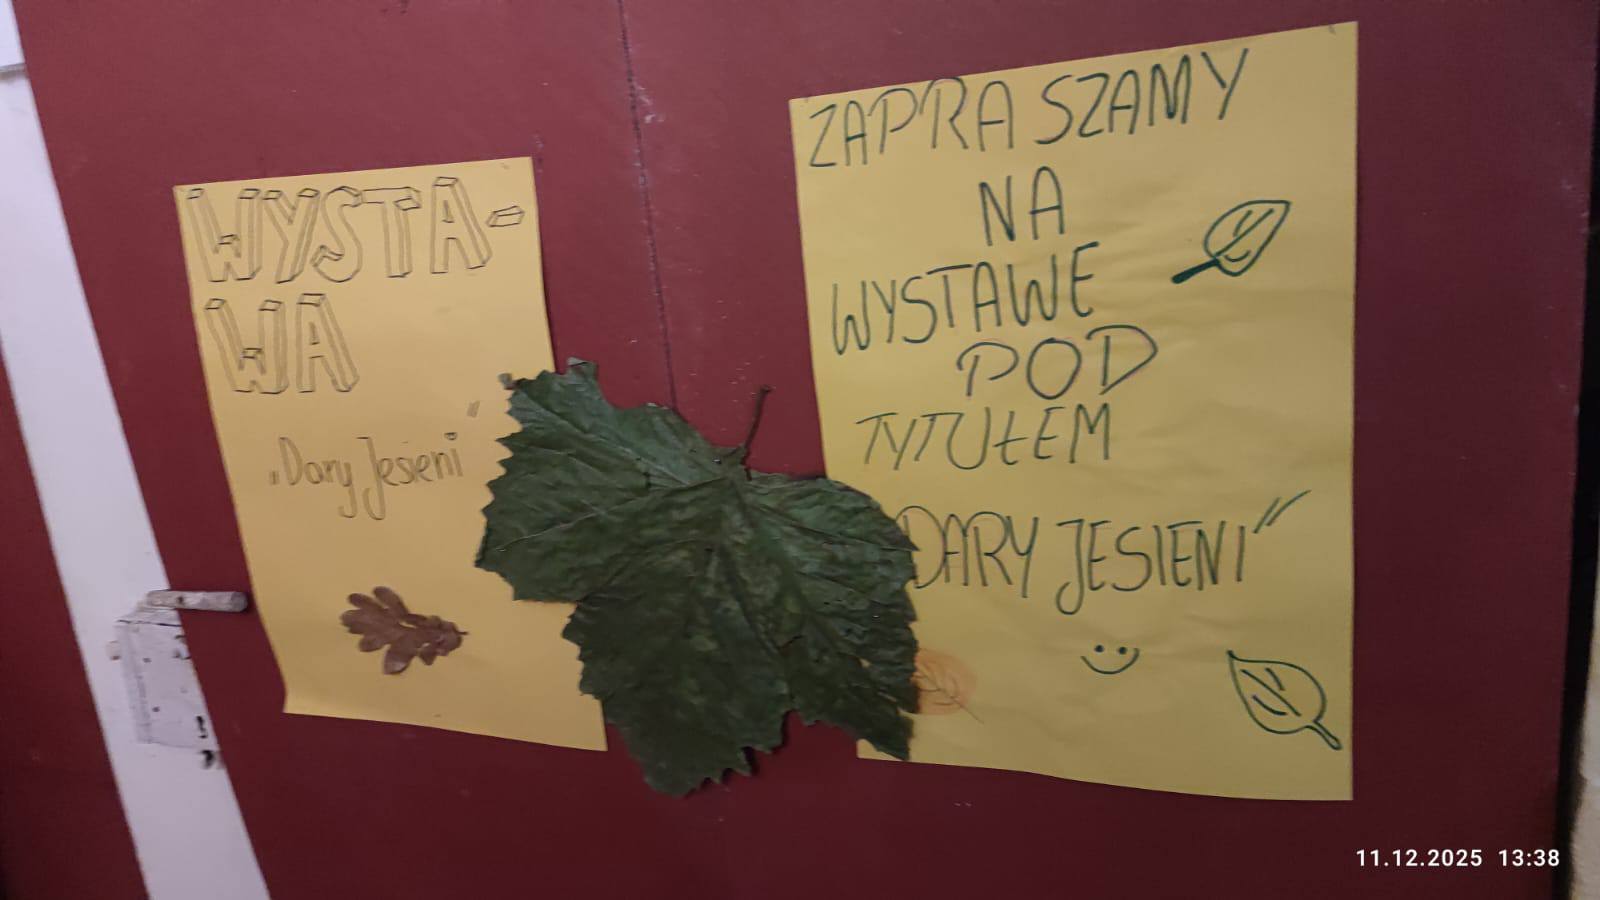 WYSTA-
WA
„Dary Jesieni"
ZAPRASZAMY
NA
WYSTAWE
POD
TYTUŁEM
DARY JESIENI"
11.12.2025 13:38